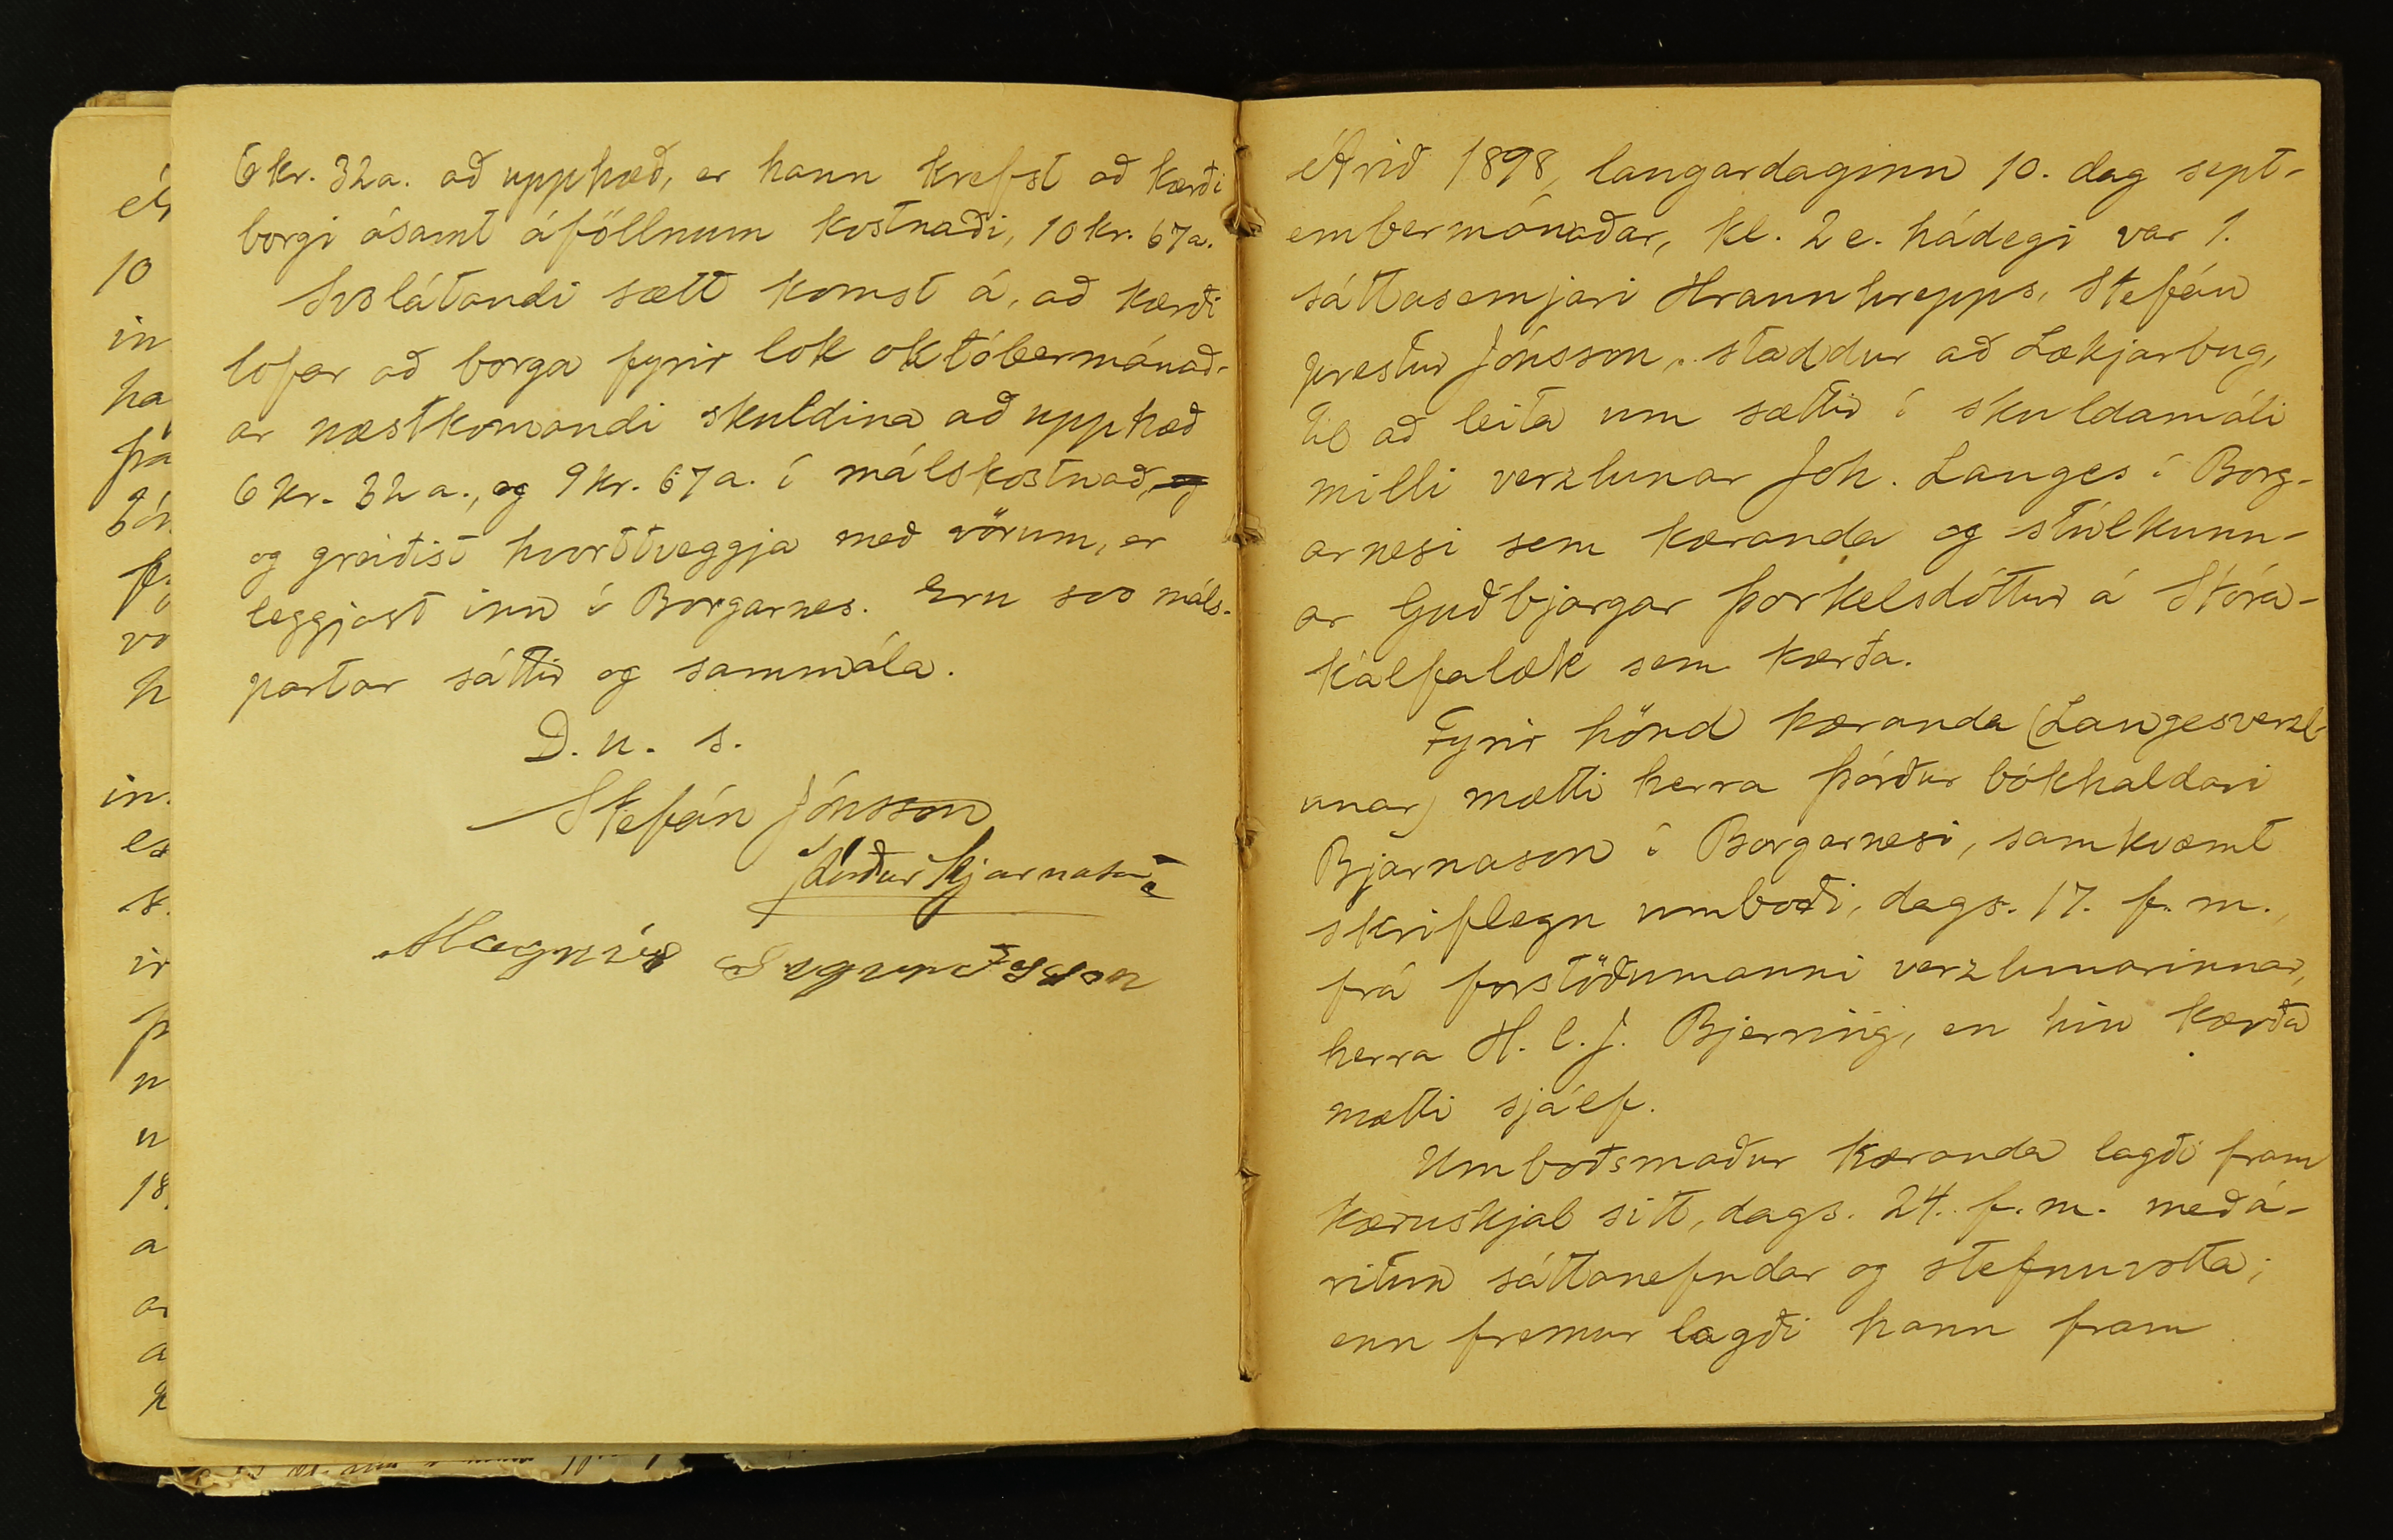 6 kr. 32 a. að upphæð, er hann krefst að kærði
borgi ásamt áföllnum kostnaði, 10 kr. 67 a.
Svolátandi sætt komst á, að kærði
lofar að borga fyrir lok októbermánað-
ar næstkomandi skuldina að upphæð
6 kr. 32 a., og 9 kr. 67 a. í málskostnað, og
og greiðist hvorttveggja með vörum, er
leggjast inn í Borgarnes. Eru svo máls-
partar sáttir og sammála.
D. u. s.
Stefán Jónsson
Þórður Bjarnason
Magnús Sigurðsson
Árið 1898, laugardaginn 10. dag sept-
embermánaðar, kl. 2 e. hádegi var 1.
sáttasemjari Hraunhrepps, Stefán
prestur Jónsson, staddur að Lækjarbug,
til að leita um sættir í skuldamáli
milli verzlunar Joh. Langes í Borg-
arnesi sem kæranda og stúlkunn-
ar Guðbjargar Þorkelsdóttur á Stóra-
kálfalæk sem kærða.
Fyrir hönd kæranda (Langesverzl-
unar) mætti herra Þórður bókhaldari
Bjarnason í Borgarnesi, samkvæmt
skriflegu umboði, dags. 17. f. m.,
frá forstöðumanni verzlunarinnar,
herra H. C. J. Bjerring, en hin kærða
mætti sjálf.
Umboðsmaður kæranda lagði fram
kæruskjal sitt, dags. 24. f. m. með á-
ritun sáttanefndar og stefnuvotta;
enn fremur lagði hann fram